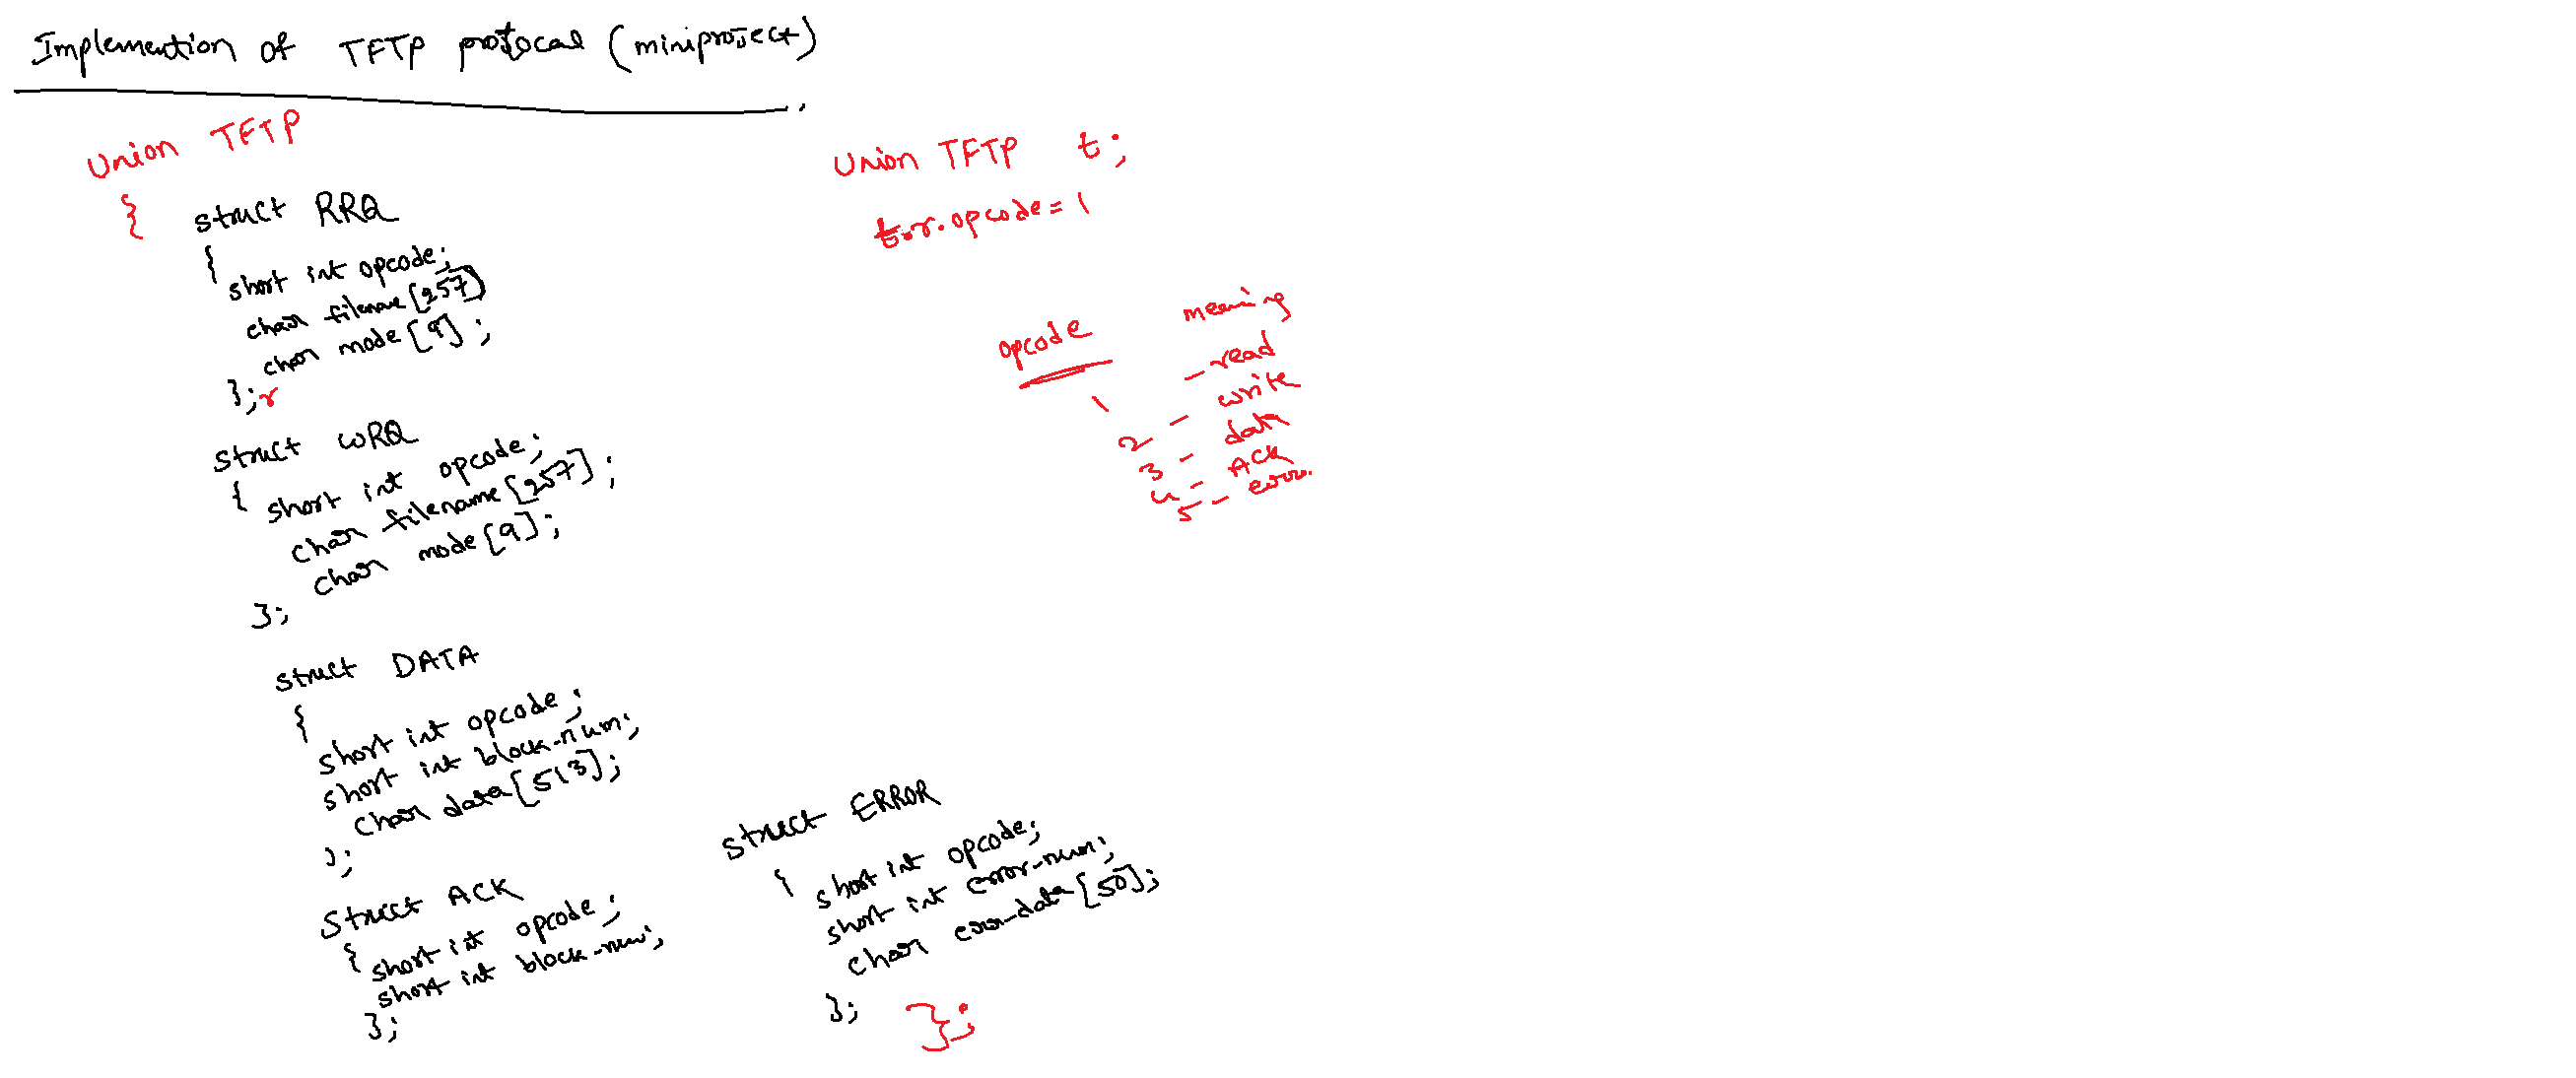 Implemention of TFTP protocal (miniproject)
Union TFTP
{ struct RRQ
{
short int opcode;
char filename[257)
char mode[9];
};r
struct WRQ
{ short int opcode;
char filename[257];
char mode[9];
};
struct DATA
{
short int opcode;
short int block-num;
char data[513];
};
Struct ACK
{ short int opcode;
short int block-num;
};
struct ERROR
{ short int opcode;
short int error-num;
char error-data[50];
};
};
Union TFTP t;
t.r.opcode=1
opcode meaning
1 - read
2 - write
3 - data
4 - ACK
5 - error.